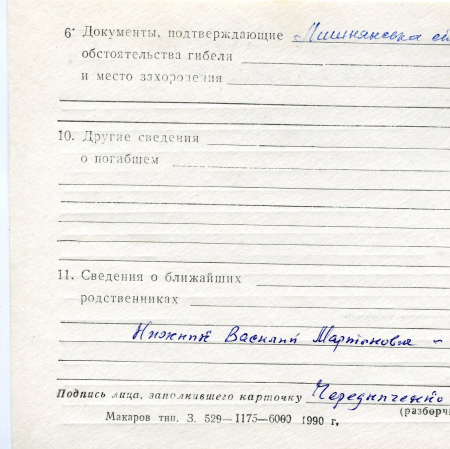 6· Документы, подтверждающие Лишнянська сіл
обстоятельства гибели
и место захоронения
10. Другие сведения
о погибшем
11. Сведения о ближайших
родственниках
Нижний Василий Мартынович –
Подпись лица, заполнившего карточку Чередниченко
(разборч
Макаров тип. З. 529—1175—6000 1990 г.